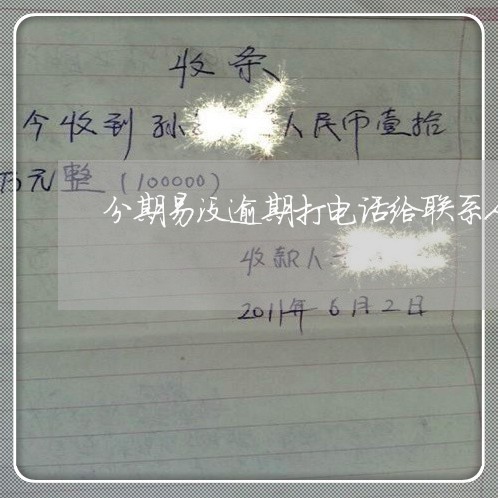 收条
今收到孙 人民币壹拾
万元整(100000)
分期易没逾期打电话给联系
收款人
2011年6月2日